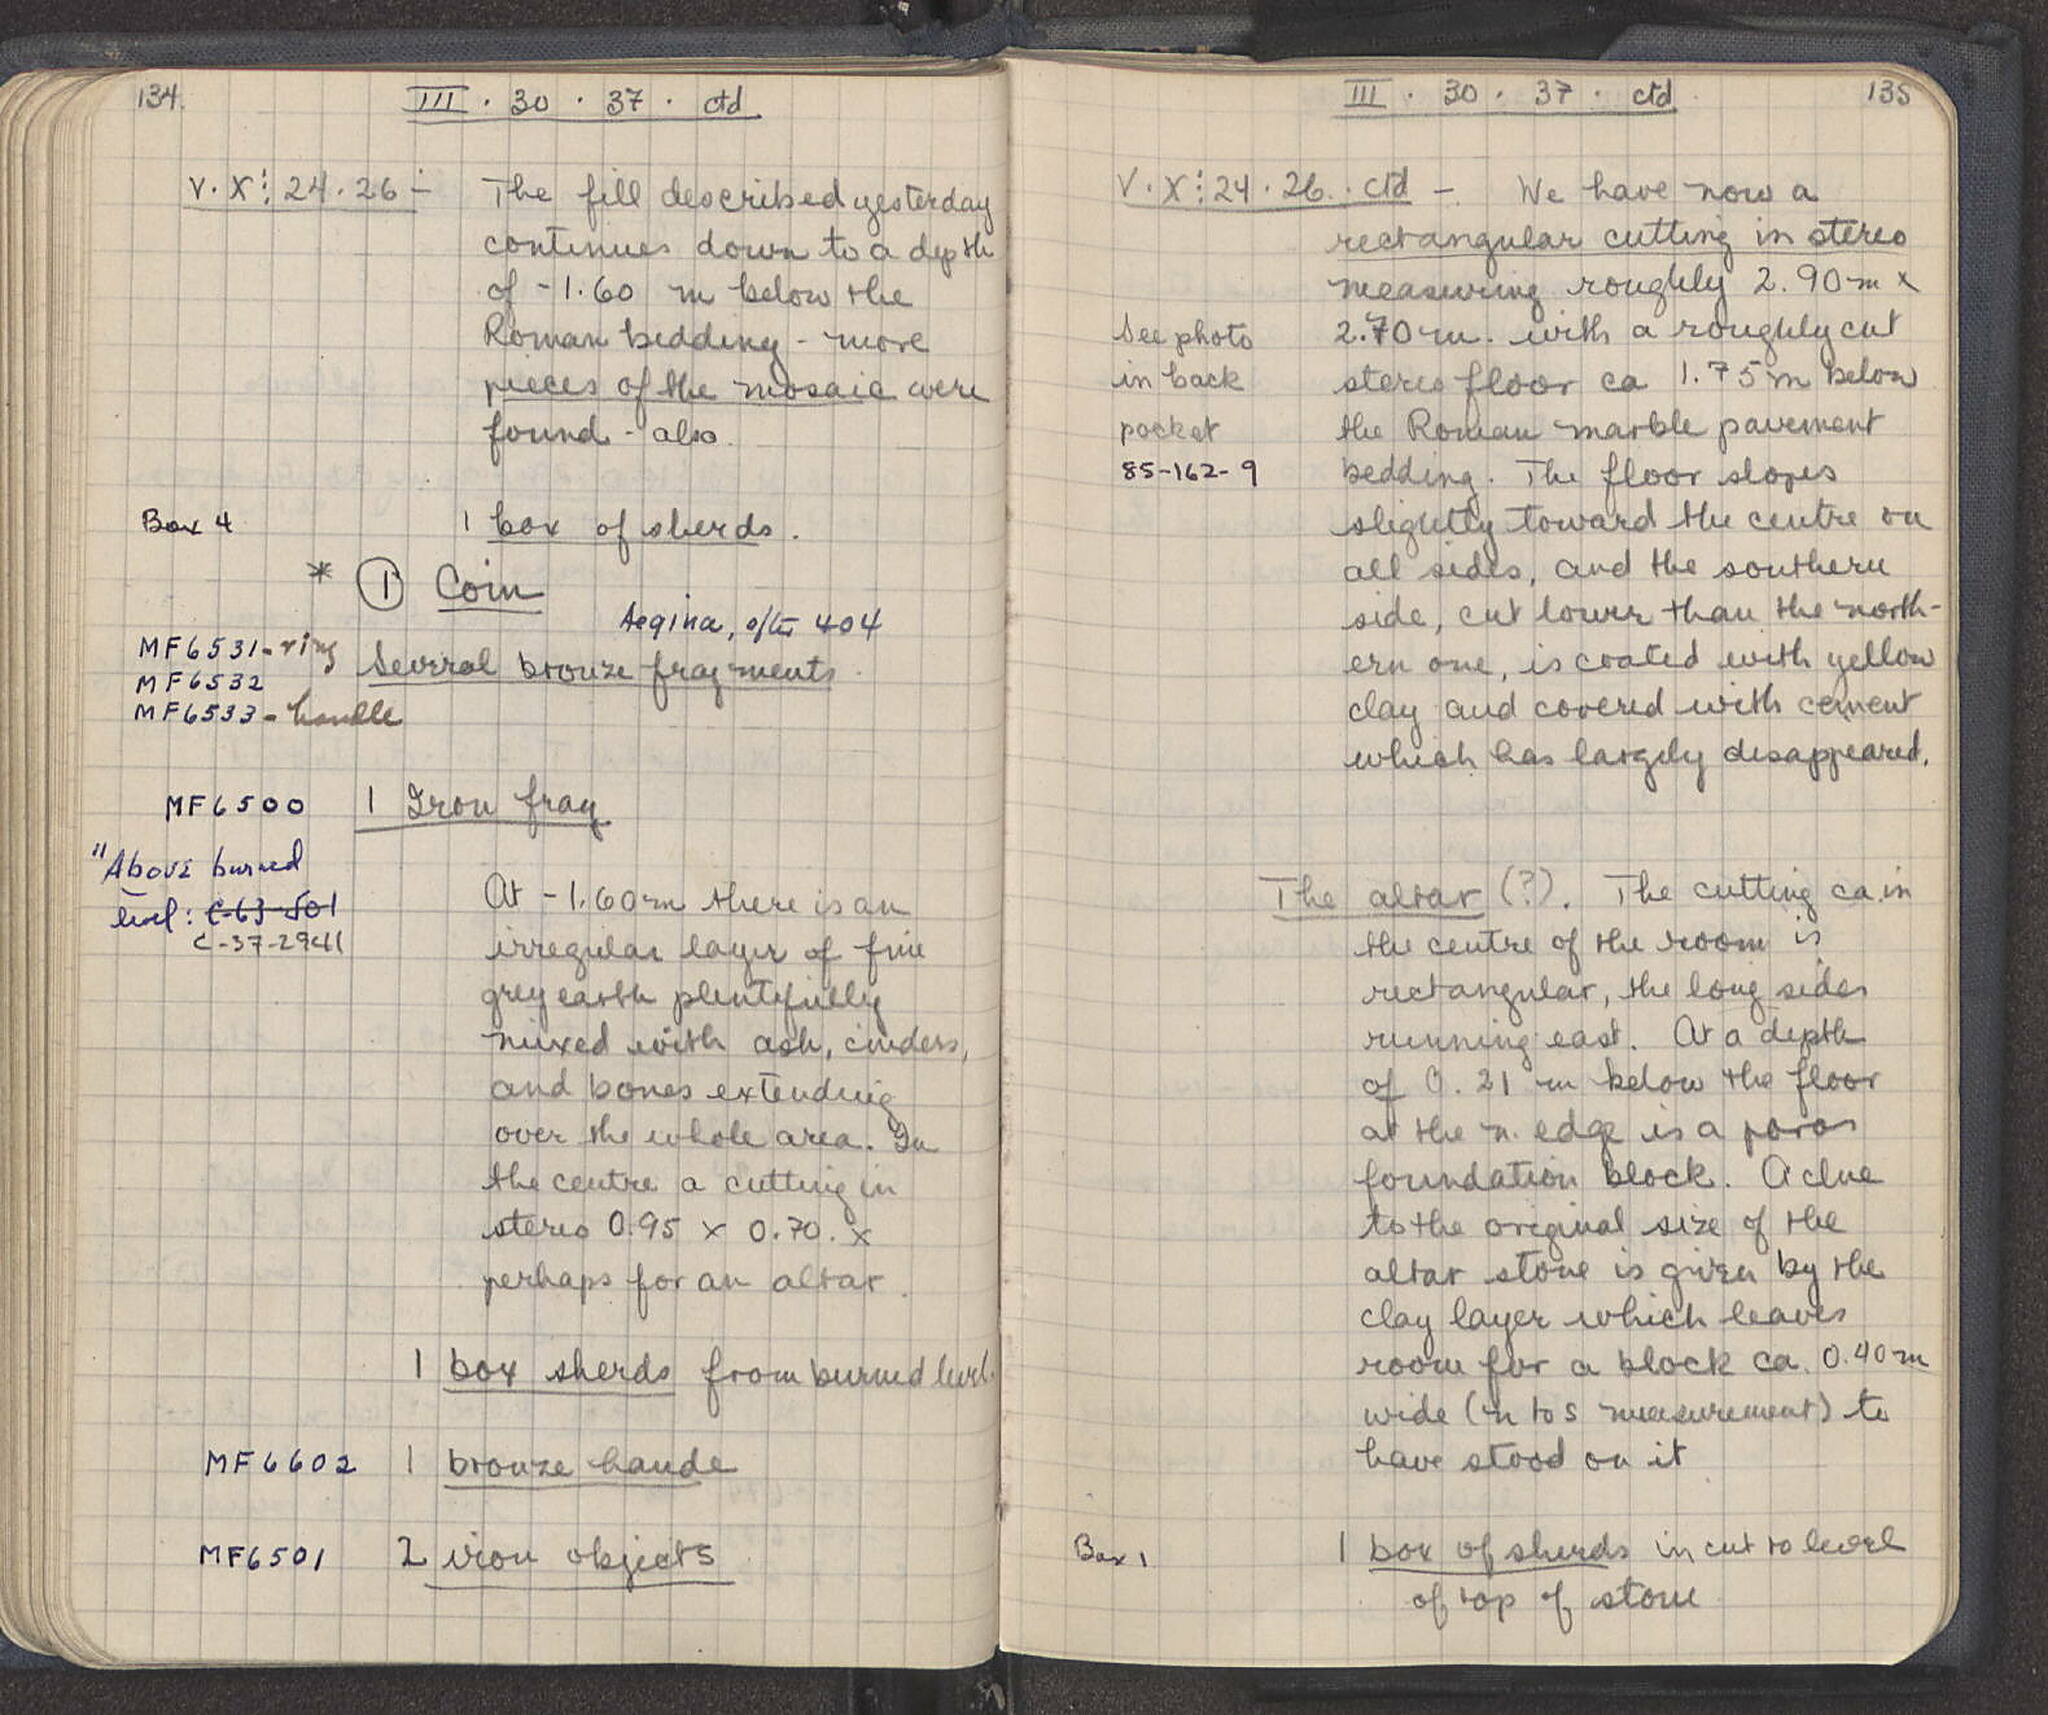 134.
III · 30 · 37 · ctd
V. X: 24. 26 - The fill described yesterday
continues down to a depth
of -1.60 m below the
Roman bedding - more
pieces of the mosaic were
found - also
Box 4 1 box of sherds.
* 1 Coin
Aegina, after 404
MF6531 - ring
Several bronze fragments.
MF6532
MF6533 - handle
MF6500 1 Iron frag
"Above burned
level: C-63-501
C-37-2941
At -1.60 m there is an
irregular layer of fine
grey earth plentifully
mixed with ash, cinders,
and bones extending
over the whole area. In
the centre a cutting in
stereo 0.95 x 0.70. x
perhaps for an altar.
1 box sherds from burned level.
MF6602 1 bronze hande
MF6501 2 iron objects
III · 30 · 37 · ctd
135
V. X: 24. 26. ctd - We have now a
rectangular cutting in stereo
measuring roughly 2.90 m x
See photo 2.70 m. with a roughly cut
in back stereo floor ca 1.75 m below
pocket the Roman marble pavement
85-162-9 bedding. The floor slopes
slightly toward the centre on
all sides, and the southern
side, cut lower than the north-
ern one, is coated with yellow
clay and covered with cement
which has largely disappeared.
The altar (?). The cutting ca. in
the centre of the room is
rectangular, the long sides
running east. At a depth
of 0.21 m below the floor
at the n. edge is a poros
foundation block. A clue
to the original size of the
altar stone is given by the
clay layer which leaves
room for a block ca. 0.40 m
wide (n to s measurement) to
have stood on it
Box 1 1 box of sherds in cut to level
of top of stone